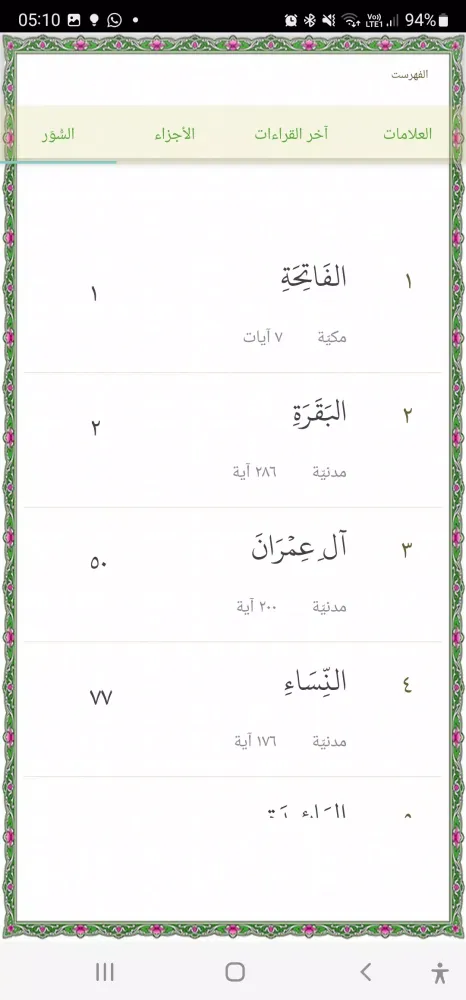 05:10 94%
Vo)) LTE1
الفهرست
العلامات آخر القراءات الأجزاء السُّوَر
١ الفَاتِحَةِ ١
مكيّة ٧ آيات
٢ البَقَرَةِ ٢
مدنيّة ٢٨٦ آية
٣ آل عِمْرَانَ ٥٠
مدنيّة ٢٠٠ آية
٤ النِّسَاءِ ٧٧
مدنيّة ١٧٦ آية